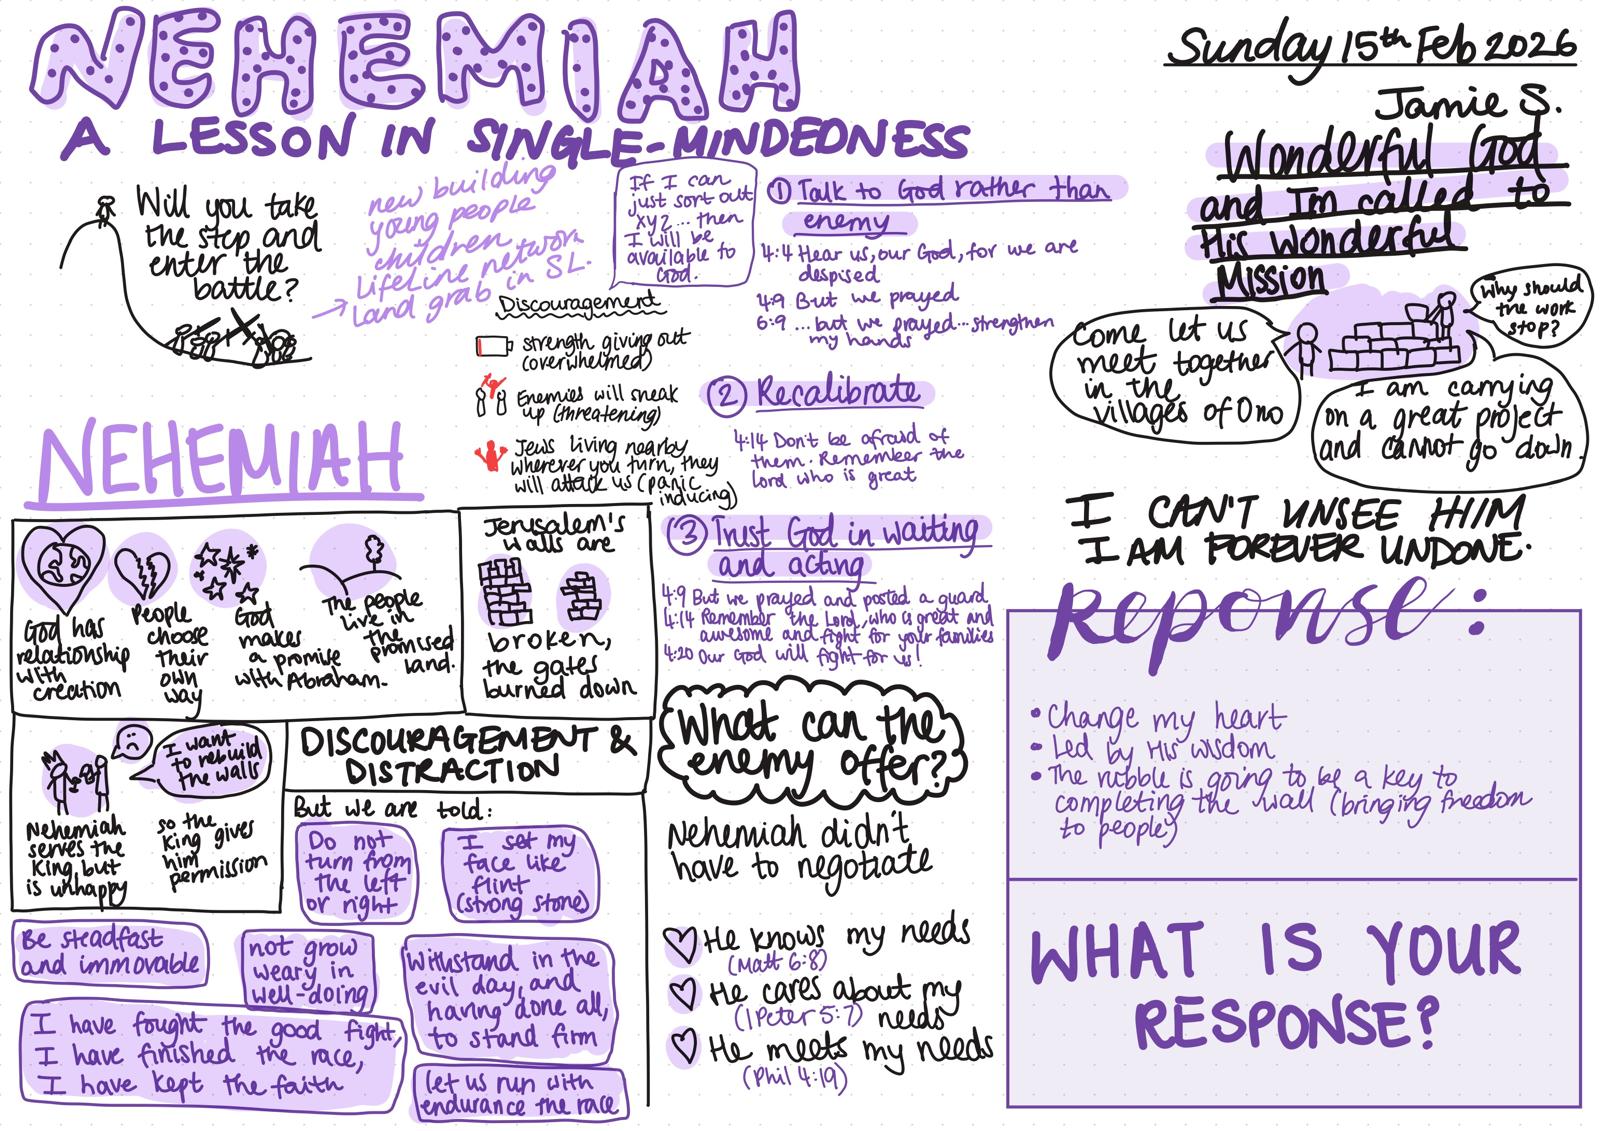 NEHEMIAH
A LESSON IN SINGLE-MINDEDNESS
Sunday 15th Feb 2026
Jamie S.
Wonderful God
and Im called to
His wonderful
Mission
Will you take
the step and
enter the
battle?
new building
young people
children
LifeLine network
→ Land grab in SL.
If I can
just sort out
xyz... then
I will be
available to
God.
Discouragement
strength giving out
(overwhelmed)
Enemies will sneak
up (threatening)
Jews living nearby
wherever you turn, they
will attack us (panic
inducing)
① Talk to God rather than
enemy
4:4 Hear us, our God, for we are
despised
4:9 But we prayed
6:9 ...but we prayed...strengthen
my hands
② Recalibrate
4:14 Don't be afraid of
them. Remember the
lord who is great
③ Trust God in waiting
and acting
4:9 But we prayed and posted a guard
4:14 Remember the Lord, who is great and
awesome and fight for your families
4:20 Our God will fight for us!
Come let us
meet together
in the
villages of Ono
Why should
the work
stop?
I am carrying
on a great project
and cannot go down.
I CAN'T UNSEE HIM
I AM FOREVER UNDONE.
NEHEMIAH
God has
relationship
with
creation
People
choose
their
own
way
God
makes
a promise
with Abraham.
The people
live in
the
promised
land.
Jerusalem's
walls are
broken,
the gates
burned down
I want
to rebuild
the walls
Nehemiah
serves the
King but
is unhappy
so the
King gives
him
permission
DISCOURAGEMENT &
DISTRACTION
But we are told:
Do not
turn from
the left
or right
I set my
face like
flint
(strong stone)
Be steadfast
and immovable
not grow
weary in
well-doing
Withstand in the
evil day, and
having done all,
to stand firm
I have fought the good fight,
I have finished the race,
I have kept the faith
let us run with
endurance the race
What can the
enemy offer?
Nehemiah didn't
have to negotiate
He knows my needs
(Matt 6:8)
He cares about my
(1 Peter 5:7) needs
He meets my needs
(Phil 4:19)
Reponse:
• Change my heart
• Led by His wisdom
• The rubble is going to be a key to
completing the wall (bringing freedom
to people)
WHAT IS YOUR
RESPONSE?